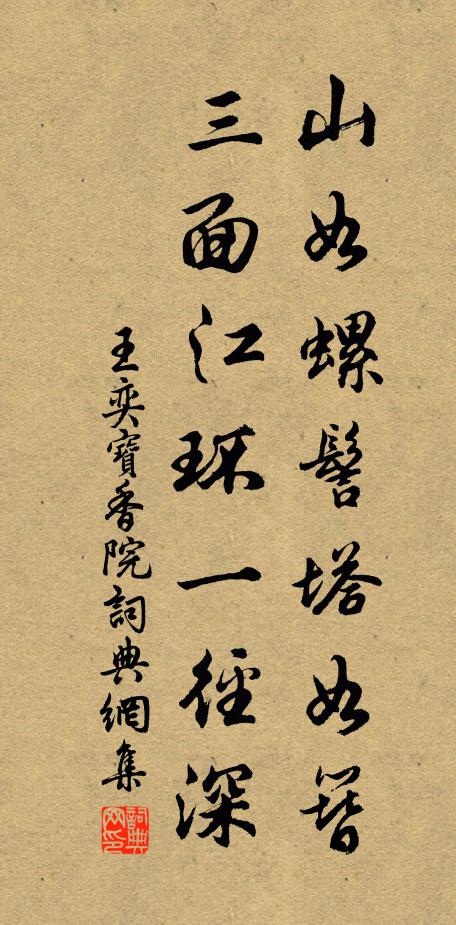 山如螺髻塔如簪
三面江环一徑深
王奕寶香院詞典網集
詞典網印